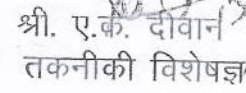 श्री. ए.के. दीवान
तकनीकी विशेषज्ञ